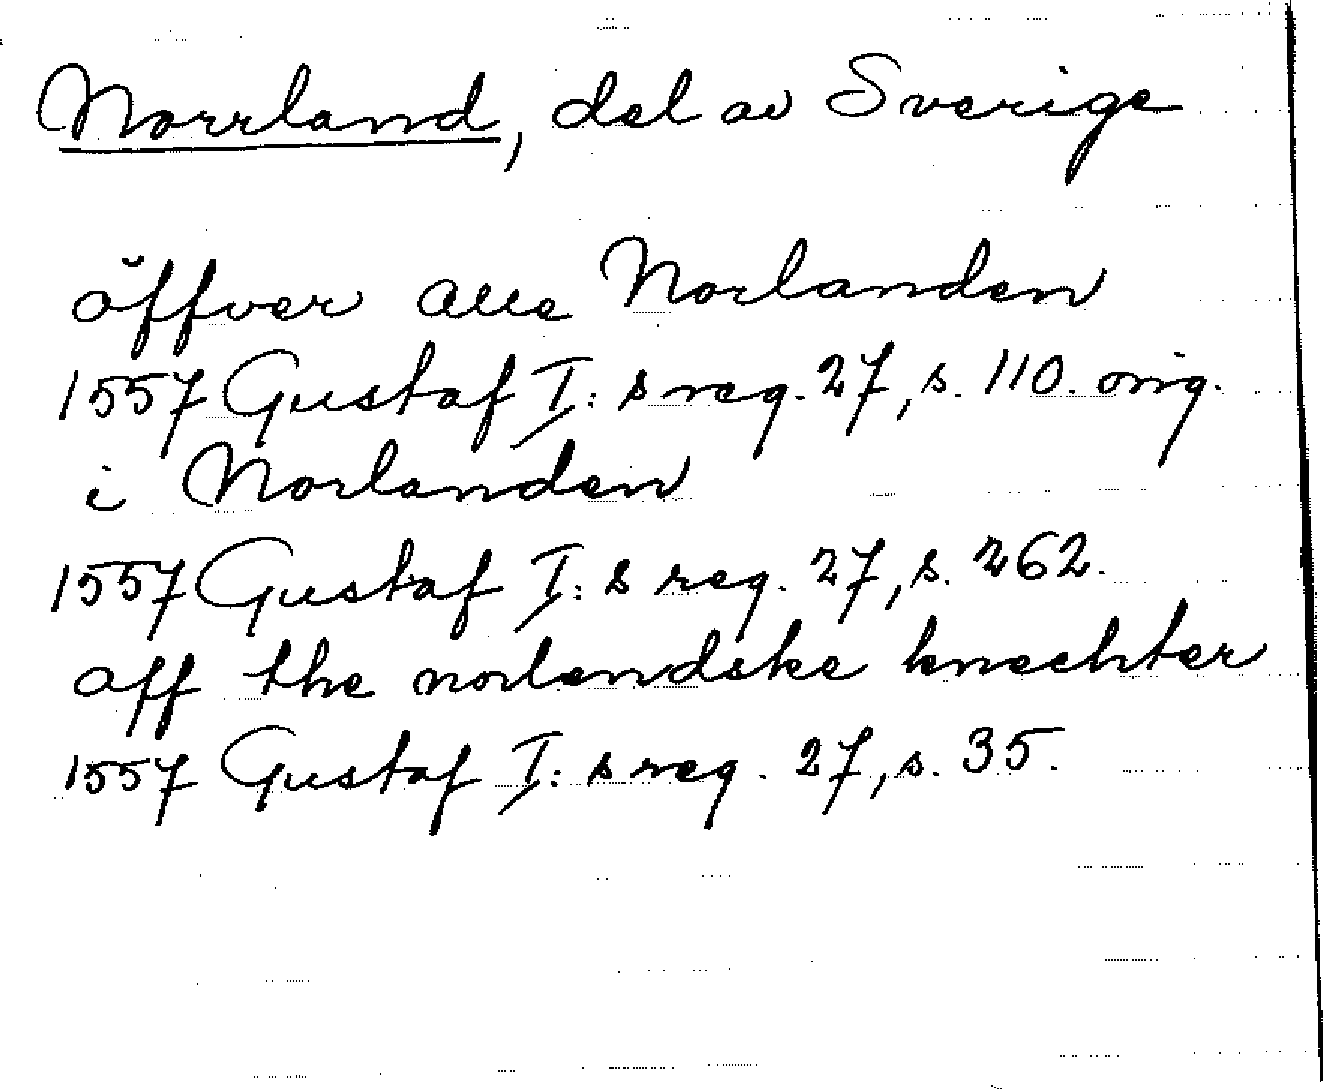 Norrland, del av Sverige
öffver alle Norlanden
1557 Gustaf I:s reg. 27, s. 110. orig.
i Norlanden
1557 Gustaf I:s reg. 27, s. 262.
aff the norlendske knechter
1557 Gustaf I:s reg. 27, s. 35.